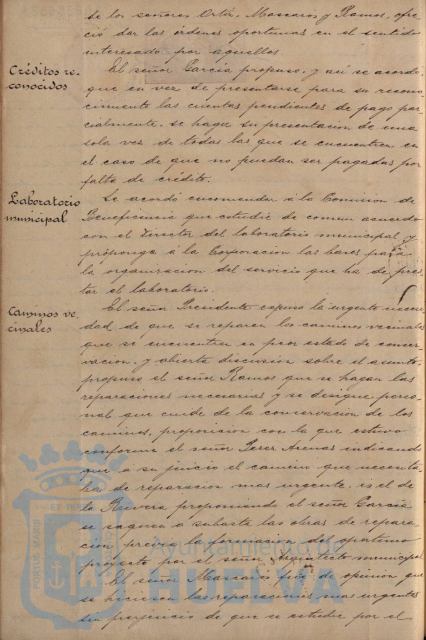 de los señores Ortiz, Mascaros y Ramos, ofre-
ció dar las órdenes oportunas en el sentido
interesado por aquellos.
Créditos re-
conocidos
El señor García propuso, y así se acordó,
que en vez de presentarse para su recono-
cimiento las cuentas pendientes de pago par-
cialmente, se haga su presentación de una
sola vez de todas las que se encuentren en
el caso de que no puedan ser pagadas por
falta de crédito.
Laboratorio
municipal
Se acordó encomendar á la Comisión de
Beneficencia que estudie de comun acuerdo
con el Director del laboratorio municipal y
proponga á la Corporacion las bases para
la organizacion del servicio que ha de pres-
tar el laboratorio.
Caminos ve-
cinales
El señor Presidente expuso la urgente necesi-
dad de que se reparen los caminos vecinales
que se encuentren en peor estado de conser-
vacion, y abierta discusión sobre el asunto,
propuso el señor Ramos que se hagan las
reparaciones necesarias y se designe perso-
nal que cuide de la conservacion de los
caminos, proposicion con la que estuvo
conforme el señor Perez Arenas indicando
que á su juicio el camino que necesita-
ba de reparacion mas urgente, es el de
la Rivera, proponiendo el señor García
se saquen á subasta las obras de repara-
cion previa la formacion del oportuno
proyecto por el señor Arquitecto municipal
El señor Mascaros fué de opinion que
se hicieran las reparaciones mas urgentes
sin perjuicio de que se estudie por el
Ayuntamiento de
HUELVA
PORTUS MARIS